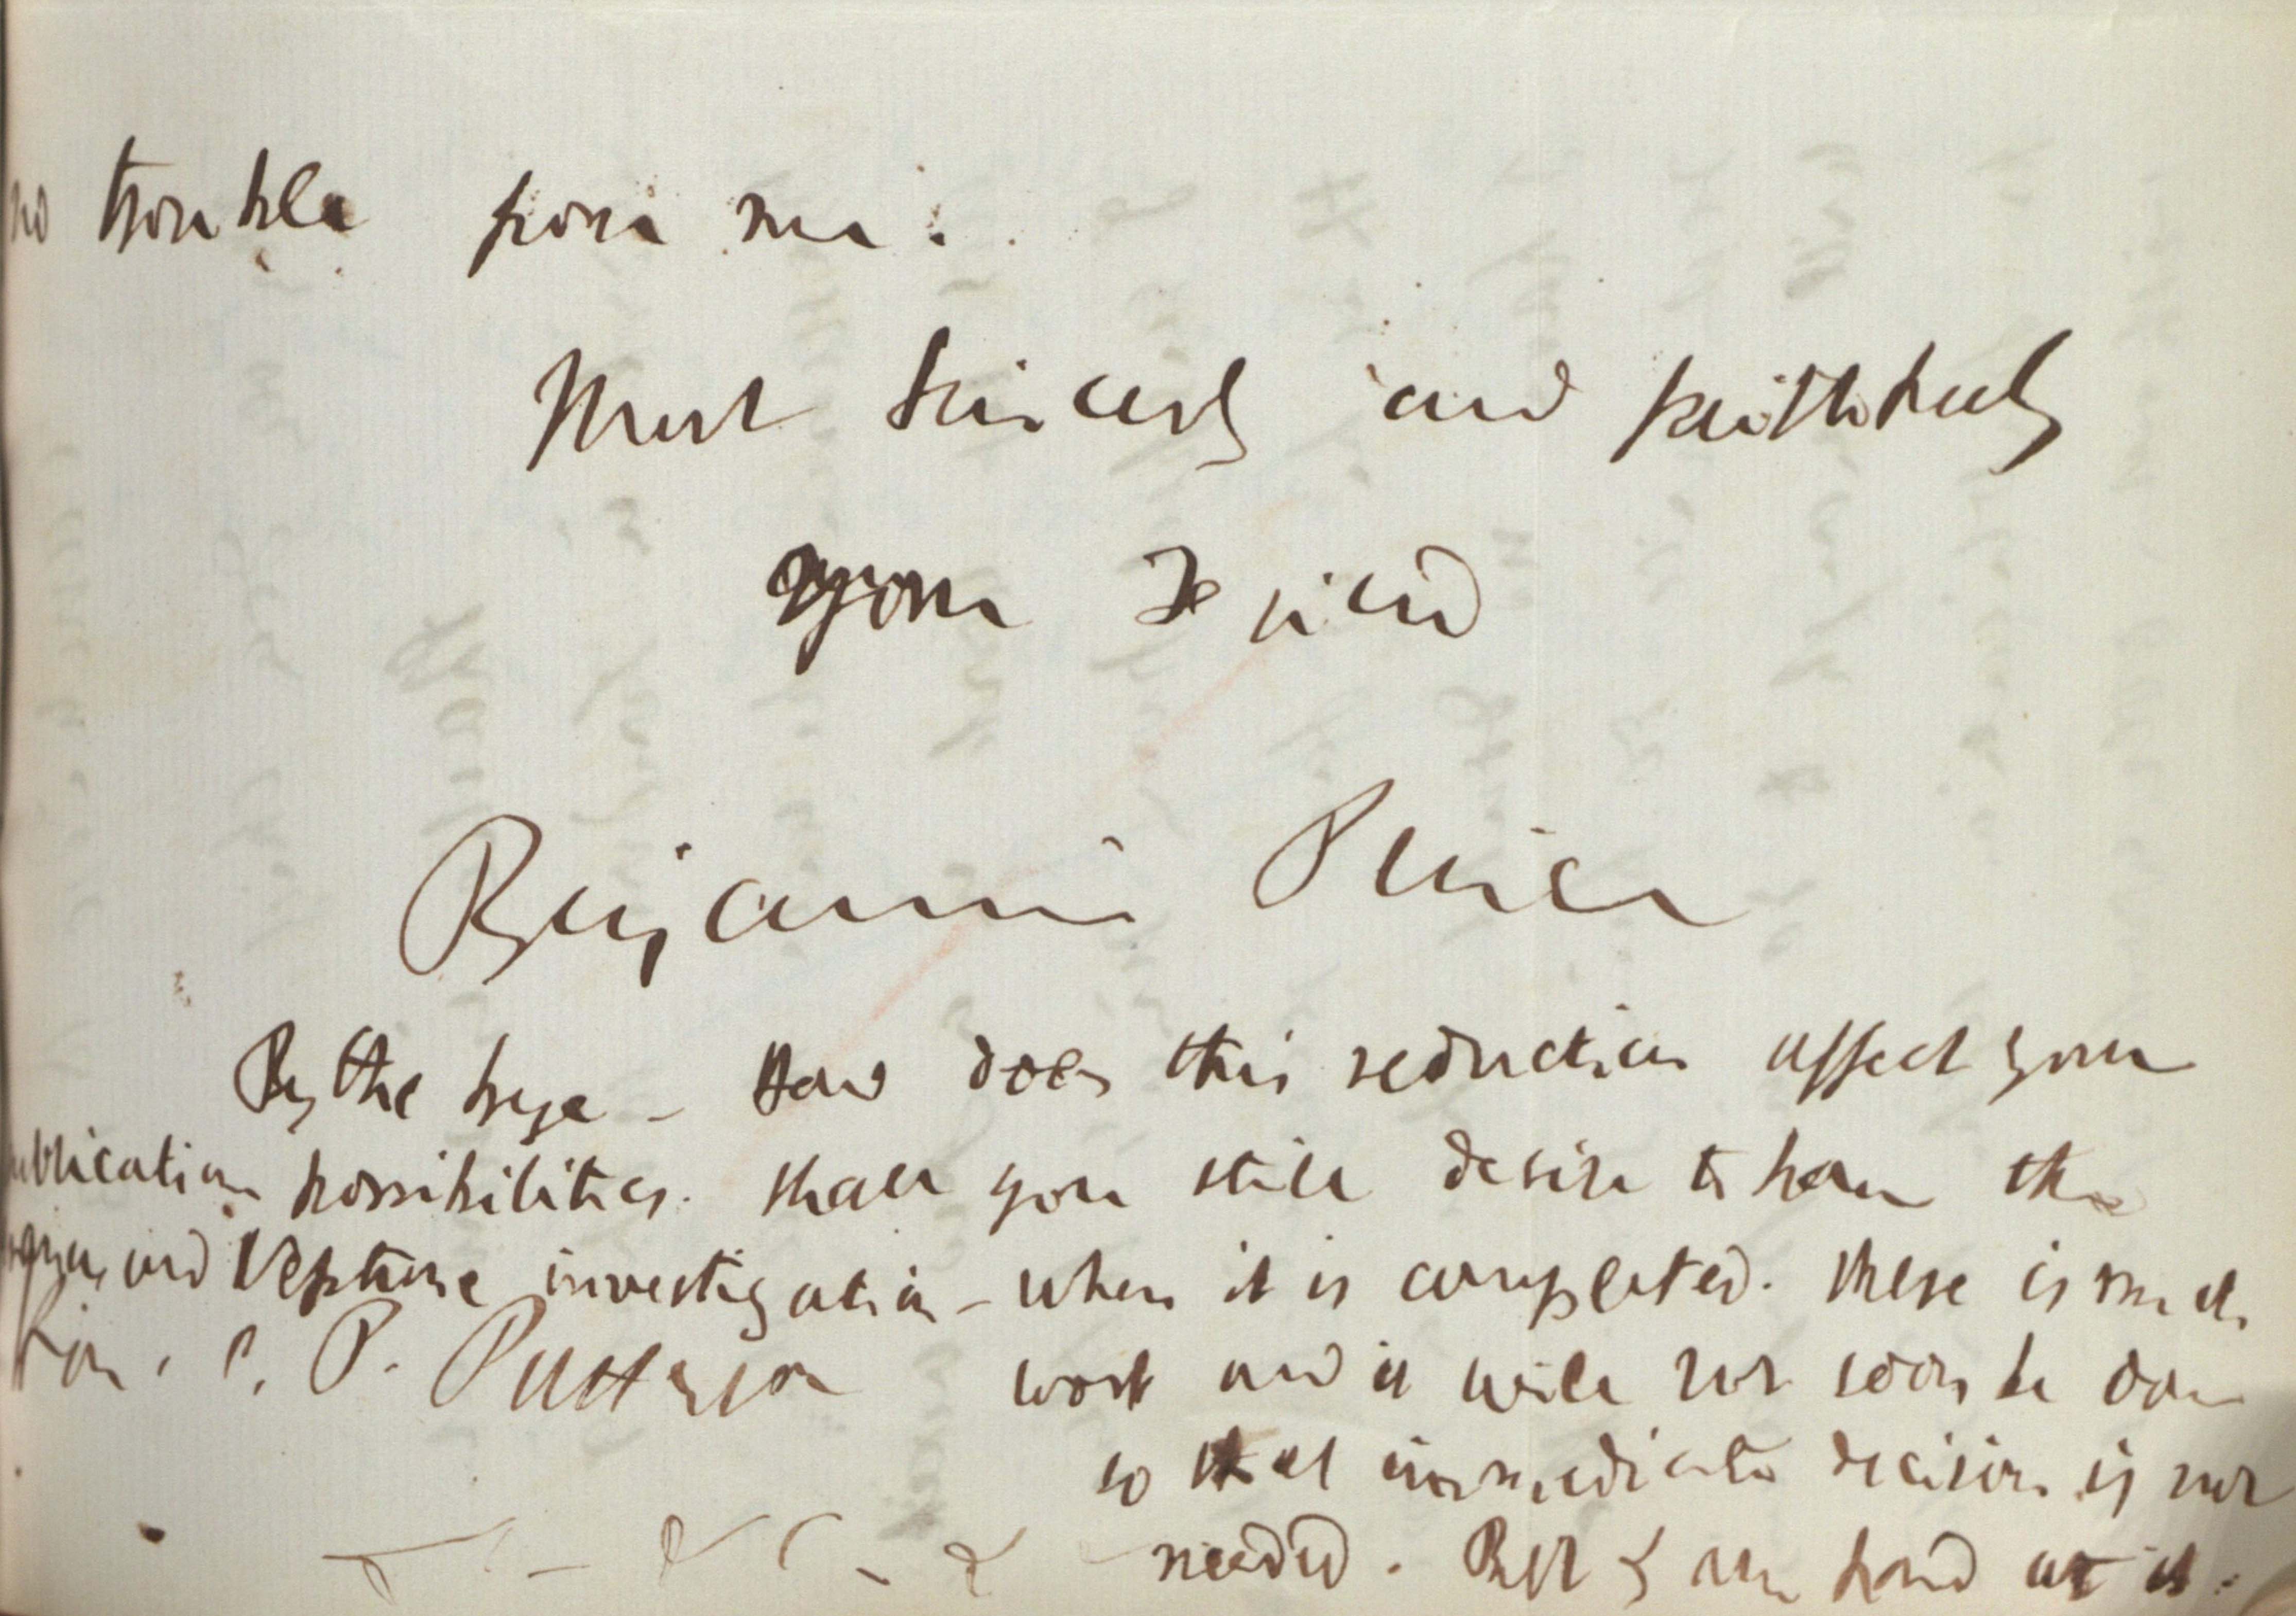 no trouble from me.
Most sincerely and faithfully
your friend
Benjamin Peirce
By the bye - How does this reduction affect your
publication possibilities. Shall you still desire to have the
and Neptune investigation - when it is completed. There is much
Hon. C. P. Patterson
work and it will not soon be done
so that immediate decision is not
needed. But I am hard at it.